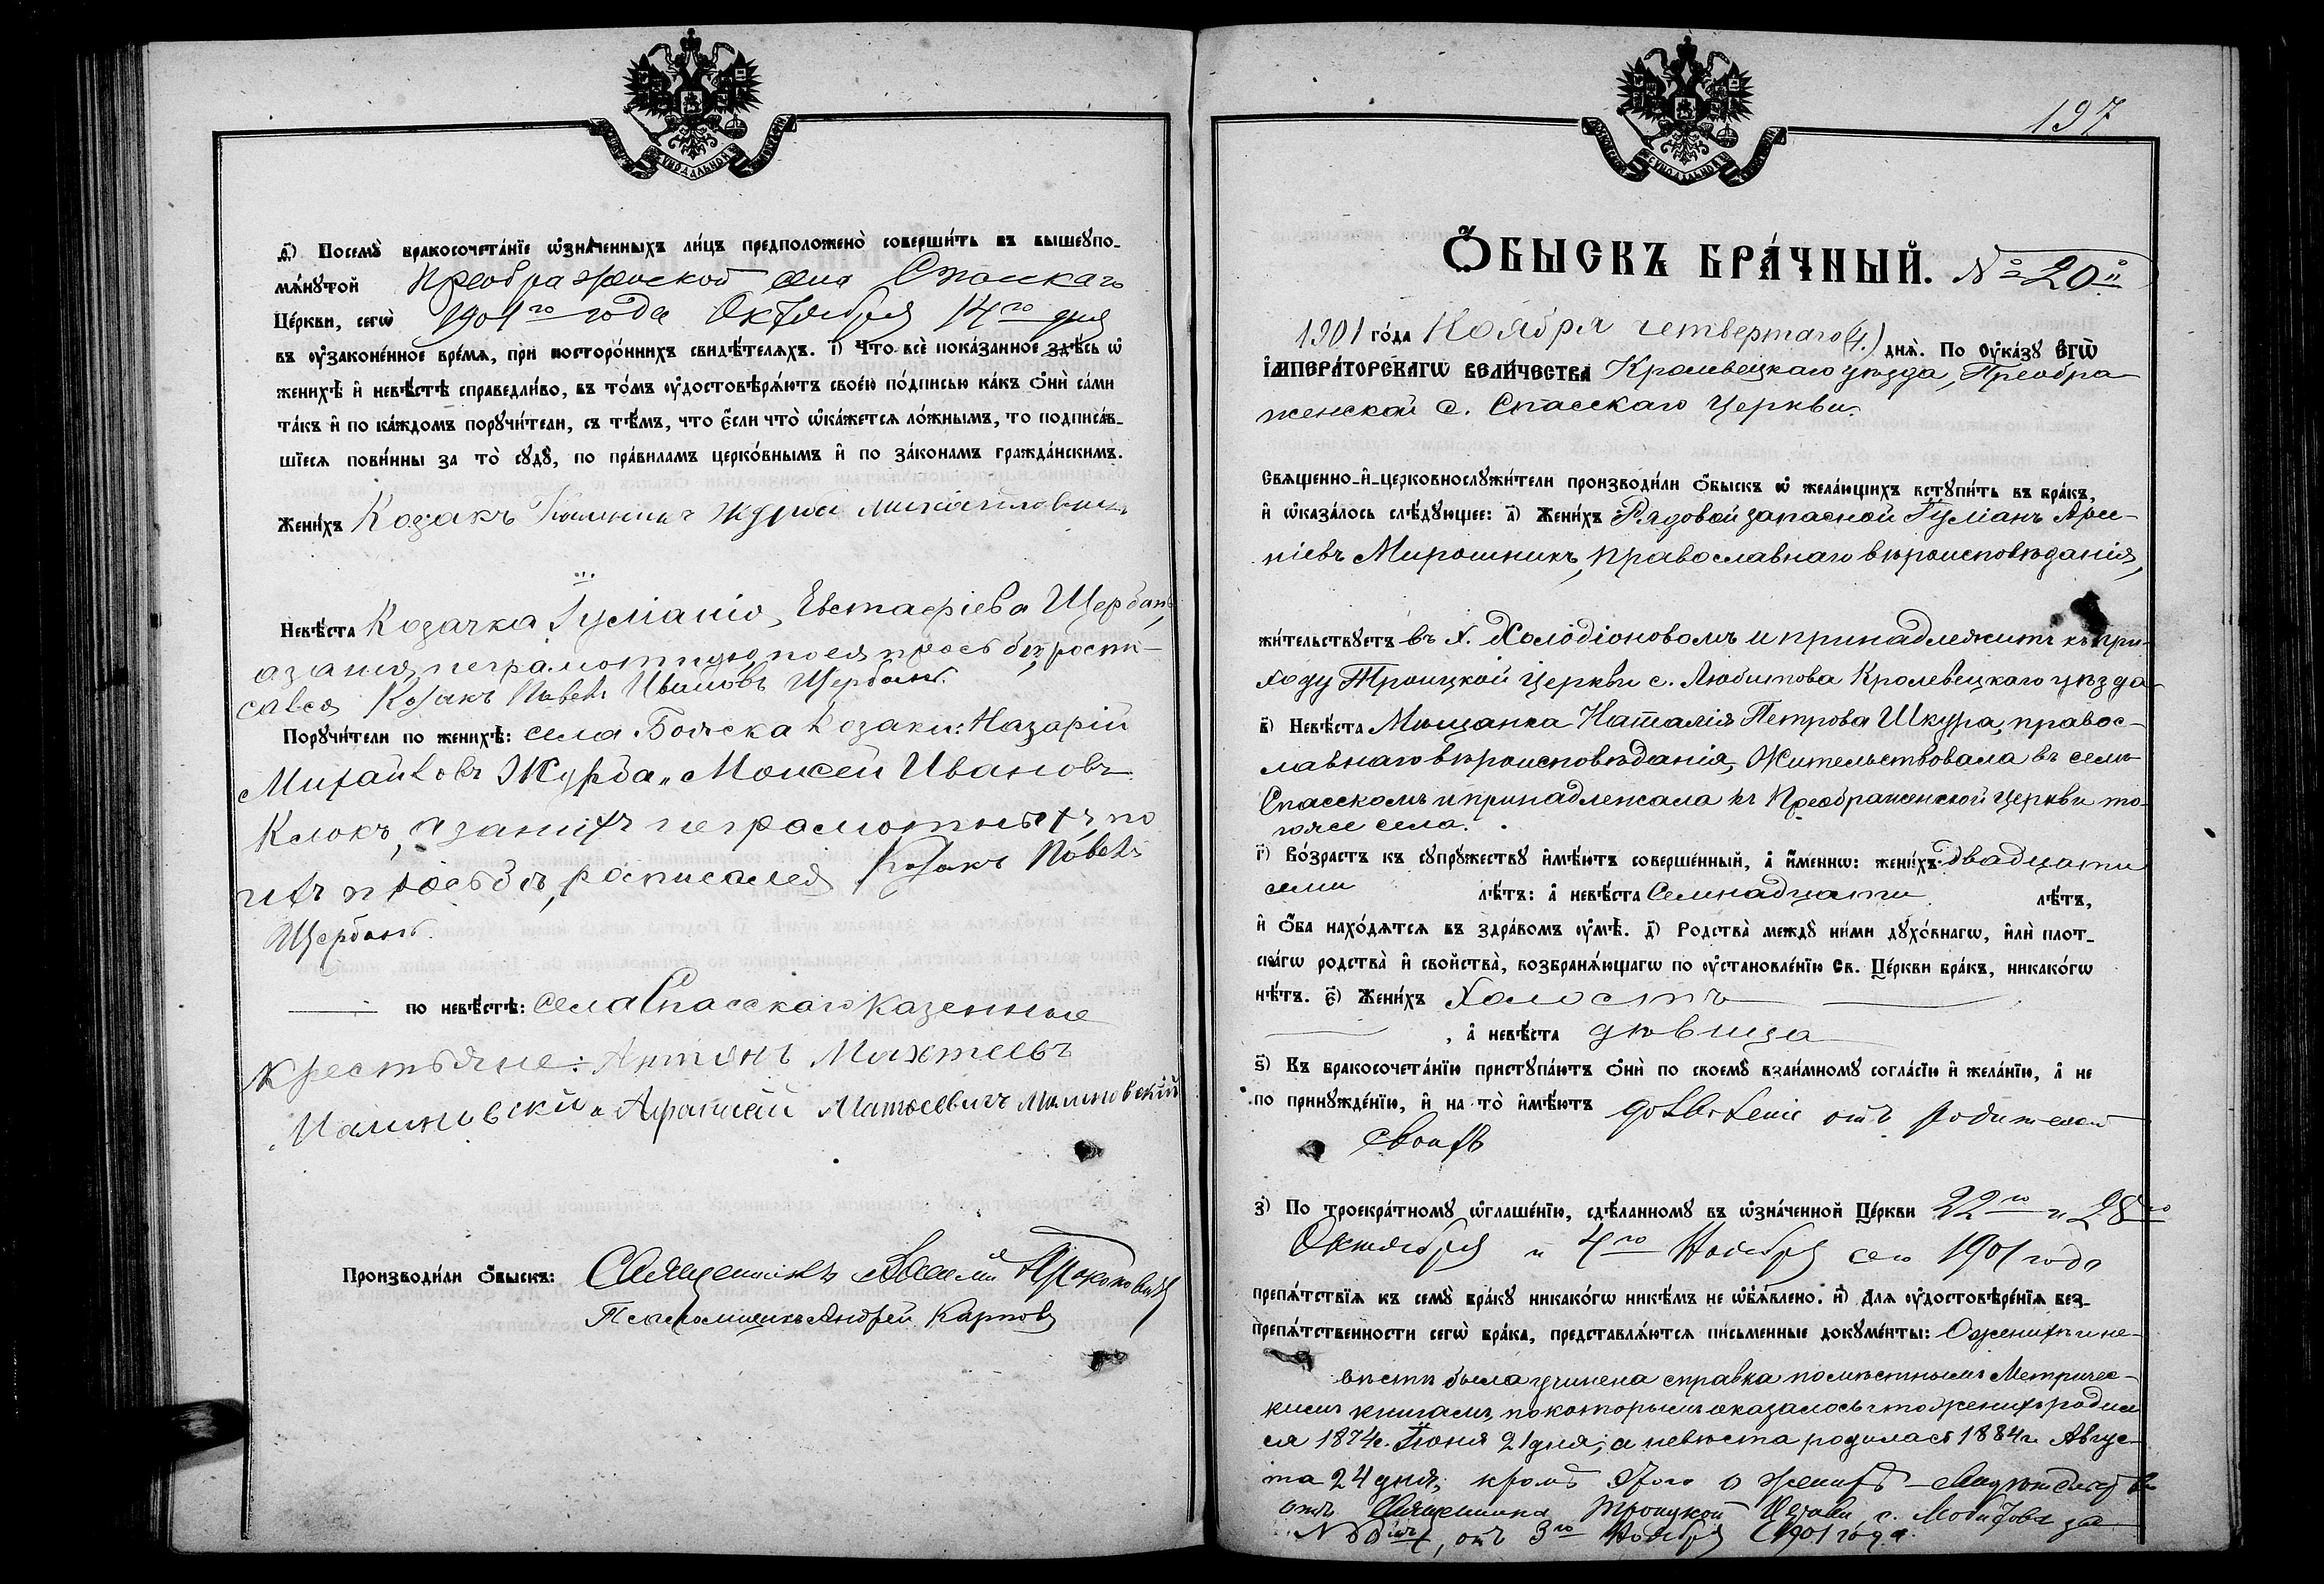 Ѳ҃) Посемꙋ̀ бракосочета́нїе ѡ҆зна́ченныхъ ли́цъ предположено̀ соверши́ть въ вышеꙋпо-
мѧ́нꙋтой Преображенской села Спаскаго
Це́ркви, сегѡ̀ 1901го года Октября 14го дня
въ ᲂу҆законе́нное вре́мѧ, при посторо́ннихъ свидѣ́телѧхъ. і҃) Что всѐ пока́занное здѣ́сь ѡ҆
женихѣ̀ и҆ невѣ́стѣ справедли́во, въ то́мъ ᲂу҆достовѣрѧ́ютъ свое́ю по́дписью ка́къ ѻ҆нѝ са́ми
та́къ и҆ по ка́ждомъ порꙋчи́тели, съ тѣ́мъ, что є҆́сли что̀ ѡ҆ка́жетсѧ ло́жнымъ, то подписа́в-
шїесѧ пови́нны за то̀ сꙋдꙋ̀, по пра́виламъ церко́внымъ и҆ по зако́намъ гражда́нскимъ.
Жени́хъ Козакъ Журба Михайловичъ
Невѣ́ста Козачка Іуліанія Евстафіева Щербакъ,
а за нея неграмотную, по ея просьбѣ, роспи-
сался Козакъ Павелъ Ивановъ Щербакъ.
Порꙋчи́тели по женихѣ̀: села Божска Козаки: Назарій
Михайловъ Журба и Моисей Ивановъ
Клокъ, а за нихъ неграмотныхъ, по
ихъ просьбѣ, росписался Козакъ Павелъ
Щербакъ.
по невѣ́стѣ: Села Спасскаго Казенные
крестьяне: Антонъ Матѳеевъ
Малиновскій и Аѳанасій Матѳеевичъ Малиновскій
Производи́ли ѻ҆́быскъ: Священникъ Василій
Псаломщикъ Андрей Карповъ
197
Ѻ҆́быскъ бра́чный. № 20й
1901 го́да Ноября четвертаго (4.) днѧ̀. По Оу҆ка́зꙋ Єгѡ̀
І҆мпера́торскагѡ Вели́чества Кролевецкаго уѣзда, Преобра-
женской с. Спасскаго Церкви.
Свѧще́нно-и҆-церковнослꙋжи́тели производи́ли ѻ҆́быскъ ѡ҆ жела́ющихъ встꙋпи́ть въ бра́къ,
и҆ ѡ҆каза́лось слѣ́дꙋющее: а҃) Жени́хъ Рядовой запасной Іуліанъ Арсе-
ніевъ Мирошникъ, православнаго вѣроисповѣданія,
жи́тельствꙋетъ въ х. Холодіоновомъ и принадлежитъ къ при-
ходу Троицкой Церкви с. Любитова Кролевецкаго уѣзда
в҃) Невѣ́ста Мѣщанка Наталія Петрова Шкура, правос-
лавнаго вѣроисповѣданія, Жительствовала въ селѣ
Спасскомъ и принадлежала къ Преображенской Церкви то-
гоже села.
г҃) Во́зрастъ къ сꙋпрꙋ́жествꙋ и҆мѣ́ютъ соверше́нный, а҆ и҆́меннѡ: жени́хъ двадцати
семи лѣ́тъ: а҆ невѣ́ста Семнадцати лѣ́тъ,
и҆ ѻ҆́ба нахо́дѧтсѧ въ здра́вомъ ᲂу҆мѣ̀. д҃) Родства̀ междꙋ̀ ни́ми дꙋхо́внагѡ, и҆лѝ плот-
ска́гѡ родства̀ и҆ сво́йства̀, возбранѧ́ющагѡ по ᲂу҆становле́нїю Св. Це́ркви бра́къ, никако́гѡ
нѣ́тъ. є҃) Жени́хъ Холостъ
, а҆ невѣ́ста дѣвица
ѕ҃) Къ бракосочета́нїю пристꙋпа́ютъ ѻ҆нѝ по своемꙋ̀ взаи́мномꙋ согла́сїю и҆ жела́нїю, а҆ не
по принꙋжде́нїю, и҆ на то̀ и҆мѣ́ютъ дозволеніе отъ родителей
своихъ
з҃) По троекра́тномꙋ ѡ҆глаше́нїю, сдѣ́ланномꙋ въ ѡ҆зна́ченной Це́ркви 22го и 28го
Октября и 4го Ноября сего 1901 года
препѧ́тствїѧ къ семꙋ̀ бра́кꙋ никако́гѡ никѣ́мъ не ѡ҆б̾ѧ́влено. и҃) Длѧ ᲂу҆достовѣре́нїѧ без-
препѧ́тственности сегѡ̀ бра́ка, представлѧ́ютсѧ пи́сьменные докꙋме́нты: О женихѣ и не-
вѣстѣ была учинена справка по мѣстнымъ Метричес-
кимъ книгамъ, по которымъ оказалось что женихъ родил-
ся 1874г. Іюня 21 дня; а невѣста родилась 1884г. Авгус-
та 24 дня; кромѣ этого о женихѣ
отъ Священника Троицкой Церкви с. Любитова за
№ отъ 3го Ноября 1901 года.